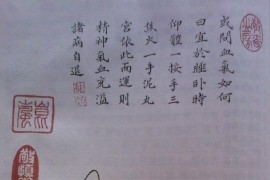 或問血氣如何
曰宜於睡卧時
仰體一按手三
焦火一手泥丸
宮依此而運則
精神氣血充溢
諸病自退